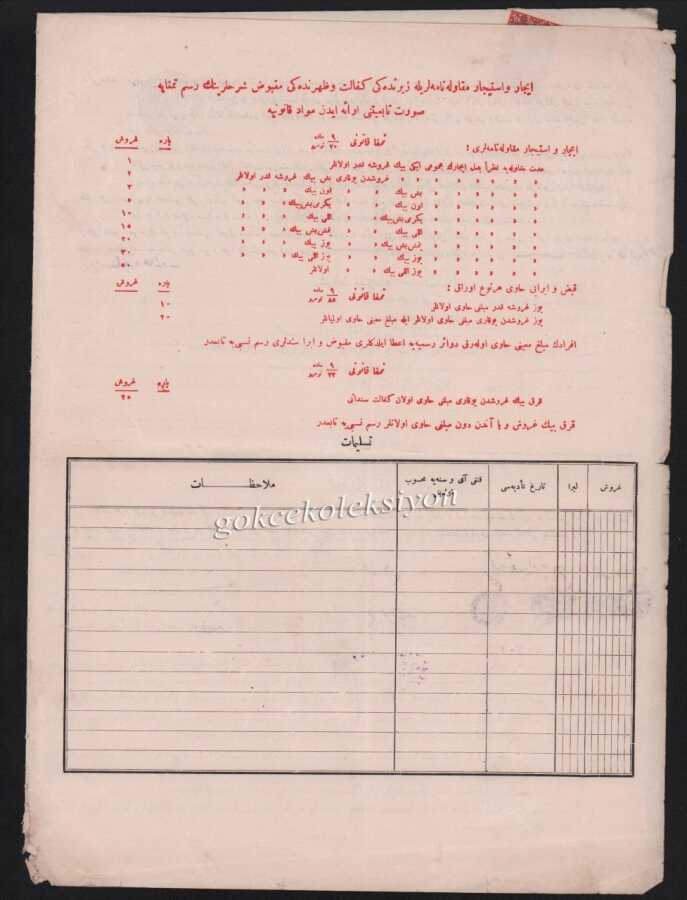 ایجار و استیجار مقاوله‌نامه‌لریله زیرنده‌كی كفالت و ظهرنده‌كی مقبوض شرحلرینك رسم تمغایه
صورت تابعیتنی ارائه ایدن مواد قانونیه
ایجار و استیجار مقاوله‌نامه‌لری : تمغا قانونی ماده ٩ نومرو ٢٠ پاره غروش
مدت مقاوله‌یه نظراً بدل ایجارك عمومی ایكی بیك غروشه قدر اولانلر ١
» » » » » » غروشدن یوقاری بش بیك غروشه قدر اولانلر ٢
» » » » » » بش بیك » » اون بیك » » » ٣
» » » » » » اون بیك » » یكرمی بش بیك » » » ٥
» » » » » » یكرمی بش بیك » » اللی بیك » » » ١٠
» » » » » » اللی بیك » » یتمش بش بیك » » » ١٥
» » » » » » یتمش بش بیك » » یوز بیك » » » ٢٠
» » » » » » یوز بیك » » یوز اللی بیك » » » ٣٠
» » » » » » یوز اللی بیك » » اولانلر ٥٠
قبض و ابرایی حاوی هر نوع اوراق : تمغا قانونی ماده ٩ نومرو ٥٥ پاره غروش
یوز غروشه قدر مبلغی حاوی اولانلر ١٠
یوز غروشدن یوقاری مبلغی حاوی اولانلر ایله مبلغ معینی حاوی اولمیانلر ٢٠
افرادك مبلغ معینی حاوی اوله‌رق دوائر رسمیه‌یه اعطا ایلدكلری مقبوض و ابرا سندلری رسم نسبی‌یه تابعدر
تمغا قانونی ماده ٩ نومرو ٢٢ پاره غروش
قرق بیك غروشدن یوقاری مبلغی حاوی اولان كفالت سنداتی ٢٥
قرق بیك غروش و یا آندن دون مبلغی حاوی اولانلر رسم نسبی‌یه تابعدر
تسلیمات
غروش لیرا تاریخ تأدیه‌سی قنغی آی و سنه‌یه محسوب ملاحظات
gokcekoleksiyon